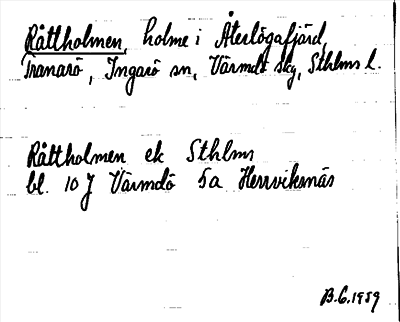 Råttholmen, holme i Återlögafjärd,
Tranarö, Ingarö sn, Värmdö skg, Sthlms l.
Råttholmen ek Sthlms
bl. 10 J Värmdö 5a Herrviksnäs
B.G. 1959